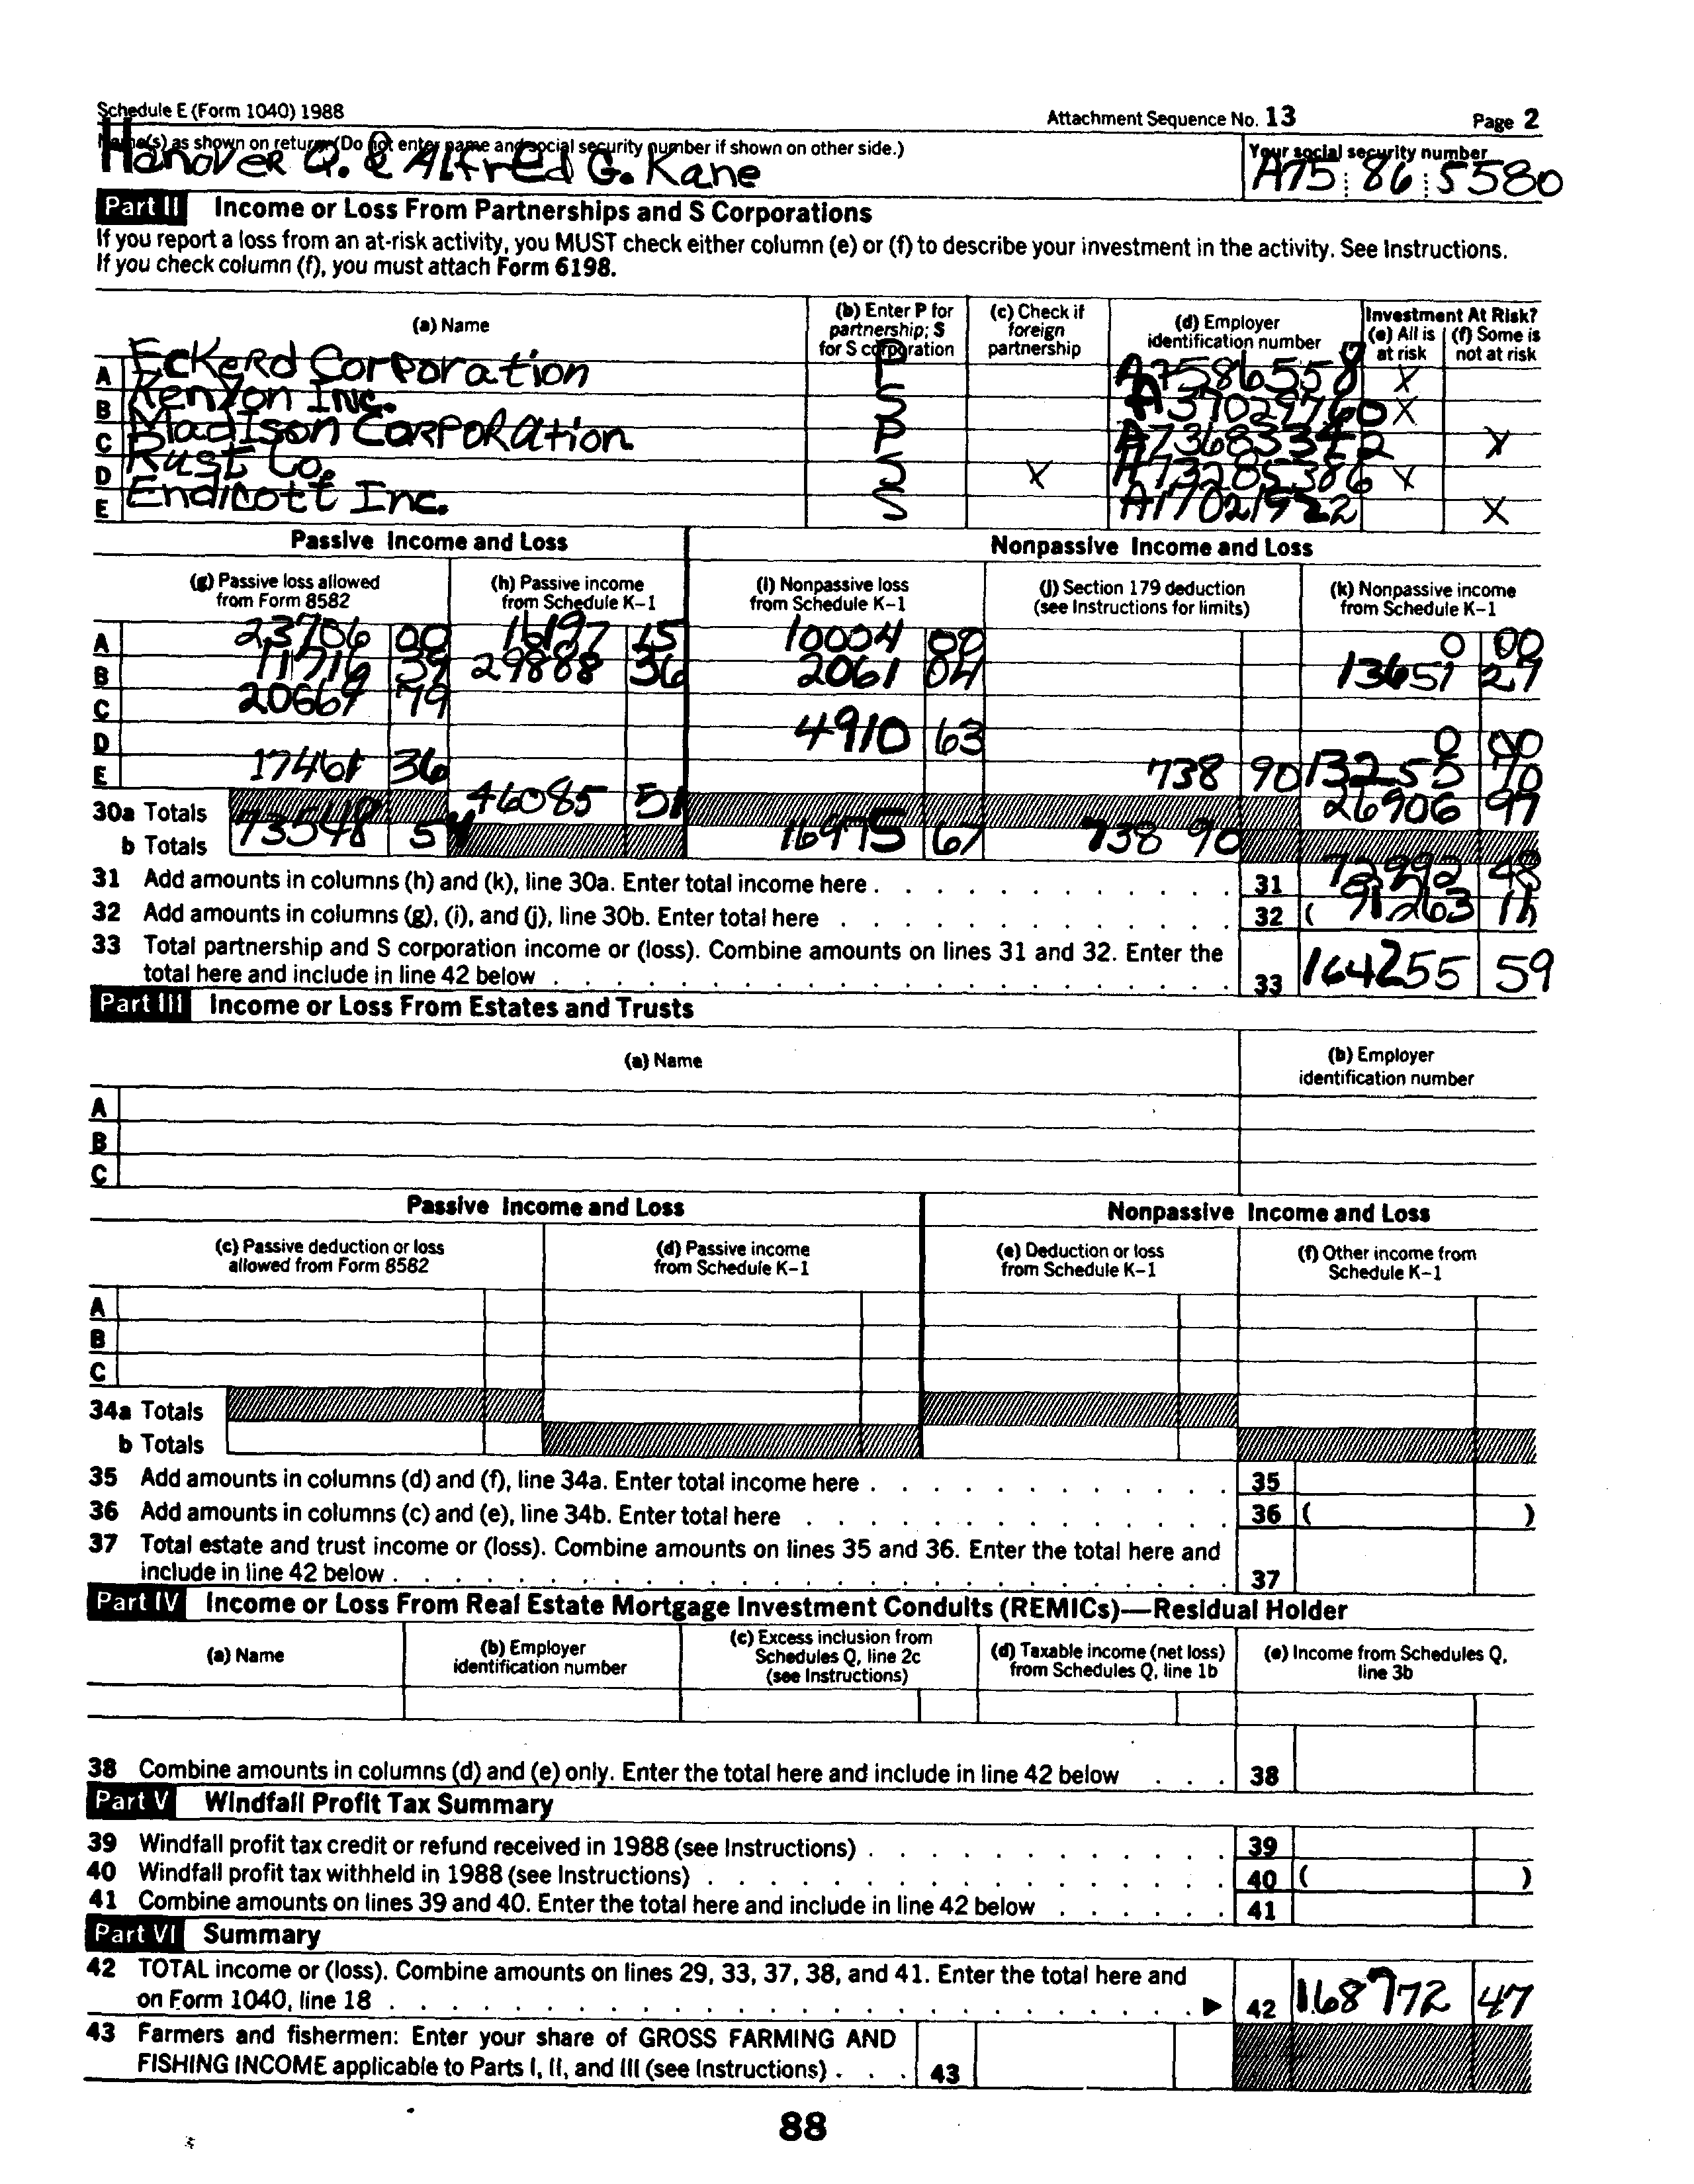 Schedule E (Form 1040) 1988 Attachment Sequence No. 13 Page 2
Name(s) as shown on return. (Do not enter name and social security number if shown on other side.) Your social security number
Hanover Q. & Alfred G. Kane A75 86 5580
Part II Income or Loss From Partnerships and S Corporations
If you report a loss from an at-risk activity, you MUST check either column (e) or (f) to describe your investment in the activity. See Instructions.
If you check column (f), you must attach Form 6198.
(a) Name (b) Enter P for partnership; S for S corporation (c) Check if foreign partnership (d) Employer identification number Investment At Risk? (e) All is at risk (f) Some is not at risk
A Eckerd Corporation P X
B Kenyon Inc. S A37029760 X
C Madison Corporation P A73683342 X
D Rust Co. S X A73285386 X
E Endicott Inc. S A17021922 X
Passive Income and Loss Nonpassive Income and Loss
(g) Passive loss allowed from Form 8582 (h) Passive income from Schedule K-1 (i) Nonpassive loss from Schedule K-1 (j) Section 179 deduction (see Instructions for limits) (k) Nonpassive income from Schedule K-1
A 23706 00 16197 15 10004 00 0 00
B 11716 39 29888 36 2061 04 13651 27
C 20664 79
D 4910 63 0 00
E 17461 36 738 90 13255 70
30a Totals 46085 51 26906 97
b Totals 73548 54 16975 67 738 90
31 Add amounts in columns (h) and (k), line 30a. Enter total income here 31 72992 48
32 Add amounts in columns (g), (i), and (j), line 30b. Enter total here 32 ( 91263 11
33 Total partnership and S corporation income or (loss). Combine amounts on lines 31 and 32. Enter the
total here and include in line 42 below 33 164255 59
Part III Income or Loss From Estates and Trusts
(a) Name (b) Employer identification number
A
B
C
Passive Income and Loss Nonpassive Income and Loss
(c) Passive deduction or loss allowed from Form 8582 (d) Passive income from Schedule K-1 (e) Deduction or loss from Schedule K-1 (f) Other income from Schedule K-1
A
B
C
34a Totals
b Totals
35 Add amounts in columns (d) and (f), line 34a. Enter total income here 35
36 Add amounts in columns (c) and (e), line 34b. Enter total here 36 ( )
37 Total estate and trust income or (loss). Combine amounts on lines 35 and 36. Enter the total here and
include in line 42 below 37
Part IV Income or Loss From Real Estate Mortgage Investment Conduits (REMICs)—Residual Holder
(a) Name (b) Employer identification number (c) Excess inclusion from Schedules Q, line 2c (see Instructions) (d) Taxable income (net loss) from Schedules Q, line 1b (e) Income from Schedules Q, line 3b
38 Combine amounts in columns (d) and (e) only. Enter the total here and include in line 42 below 38
Part V Windfall Profit Tax Summary
39 Windfall profit tax credit or refund received in 1988 (see Instructions) 39
40 Windfall profit tax withheld in 1988 (see Instructions) 40 ( )
41 Combine amounts on lines 39 and 40. Enter the total here and include in line 42 below 41
Part VI Summary
42 TOTAL income or (loss). Combine amounts on lines 29, 33, 37, 38, and 41. Enter the total here and
on Form 1040, line 18 ▶ 42 168772 47
43 Farmers and fishermen: Enter your share of GROSS FARMING AND
FISHING INCOME applicable to Parts I, II, and III (see Instructions) 43
88